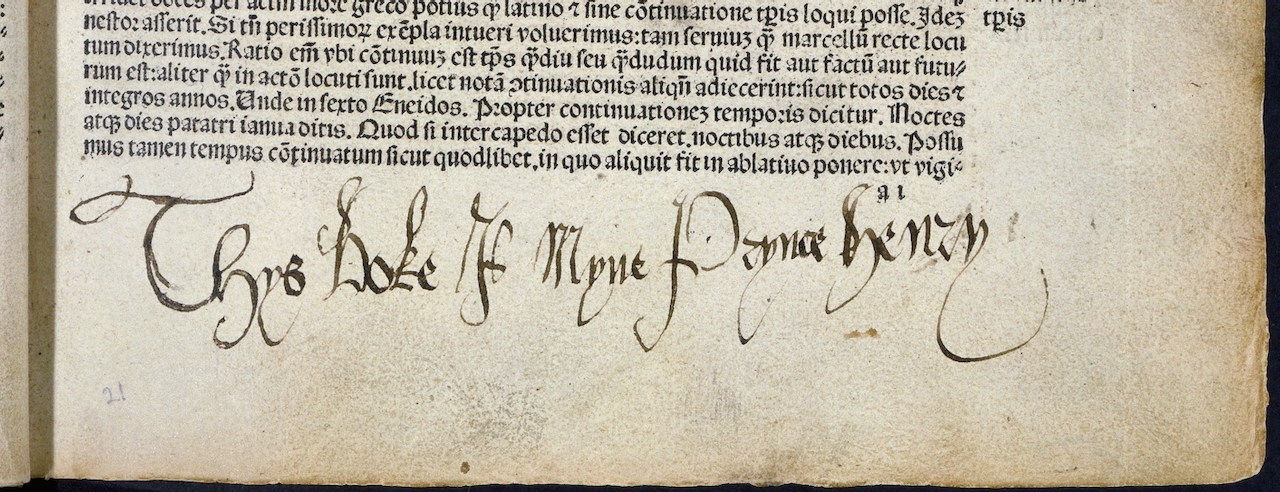 voces per actm more greco potius qͥ latino ⁊ sine cōtinuatione tp̄is loqui posse. Ideꝫ
tp̄is
nestor asserit. Si tn̄ perissimoꝝ exēpla intueri voluerimus: tam seruiuꝫ qͣ̄ marcellū recte locu
tum dixerimus. Ratio em̄ vbi cōtinuuꝫ est tp̄s qͣ̄diu seu qͣ̄dudum quid fit aut factū aut futu⸗
rum est: aliter qͣ̄ in actō locuti sunt. licet notā ↄtinuationis aliqn̄ adiecerint: sicut totos dies ⁊
integros annos. Unde in sexto Eneidos. Propter continuationeꝫ temporis dicitur. Noctes
atqꝫ dies patatri ianua ditis. Quod si intercapedo esset diceret. noctibus atqꝫ diebus. Possu
mus tamen tempus cōtinuatum sicut quodlibet. in quo aliquit fit in ablatiuo ponere: vt vigi⸗
a 1
Thys boke Is Myne Prynce Henry
21